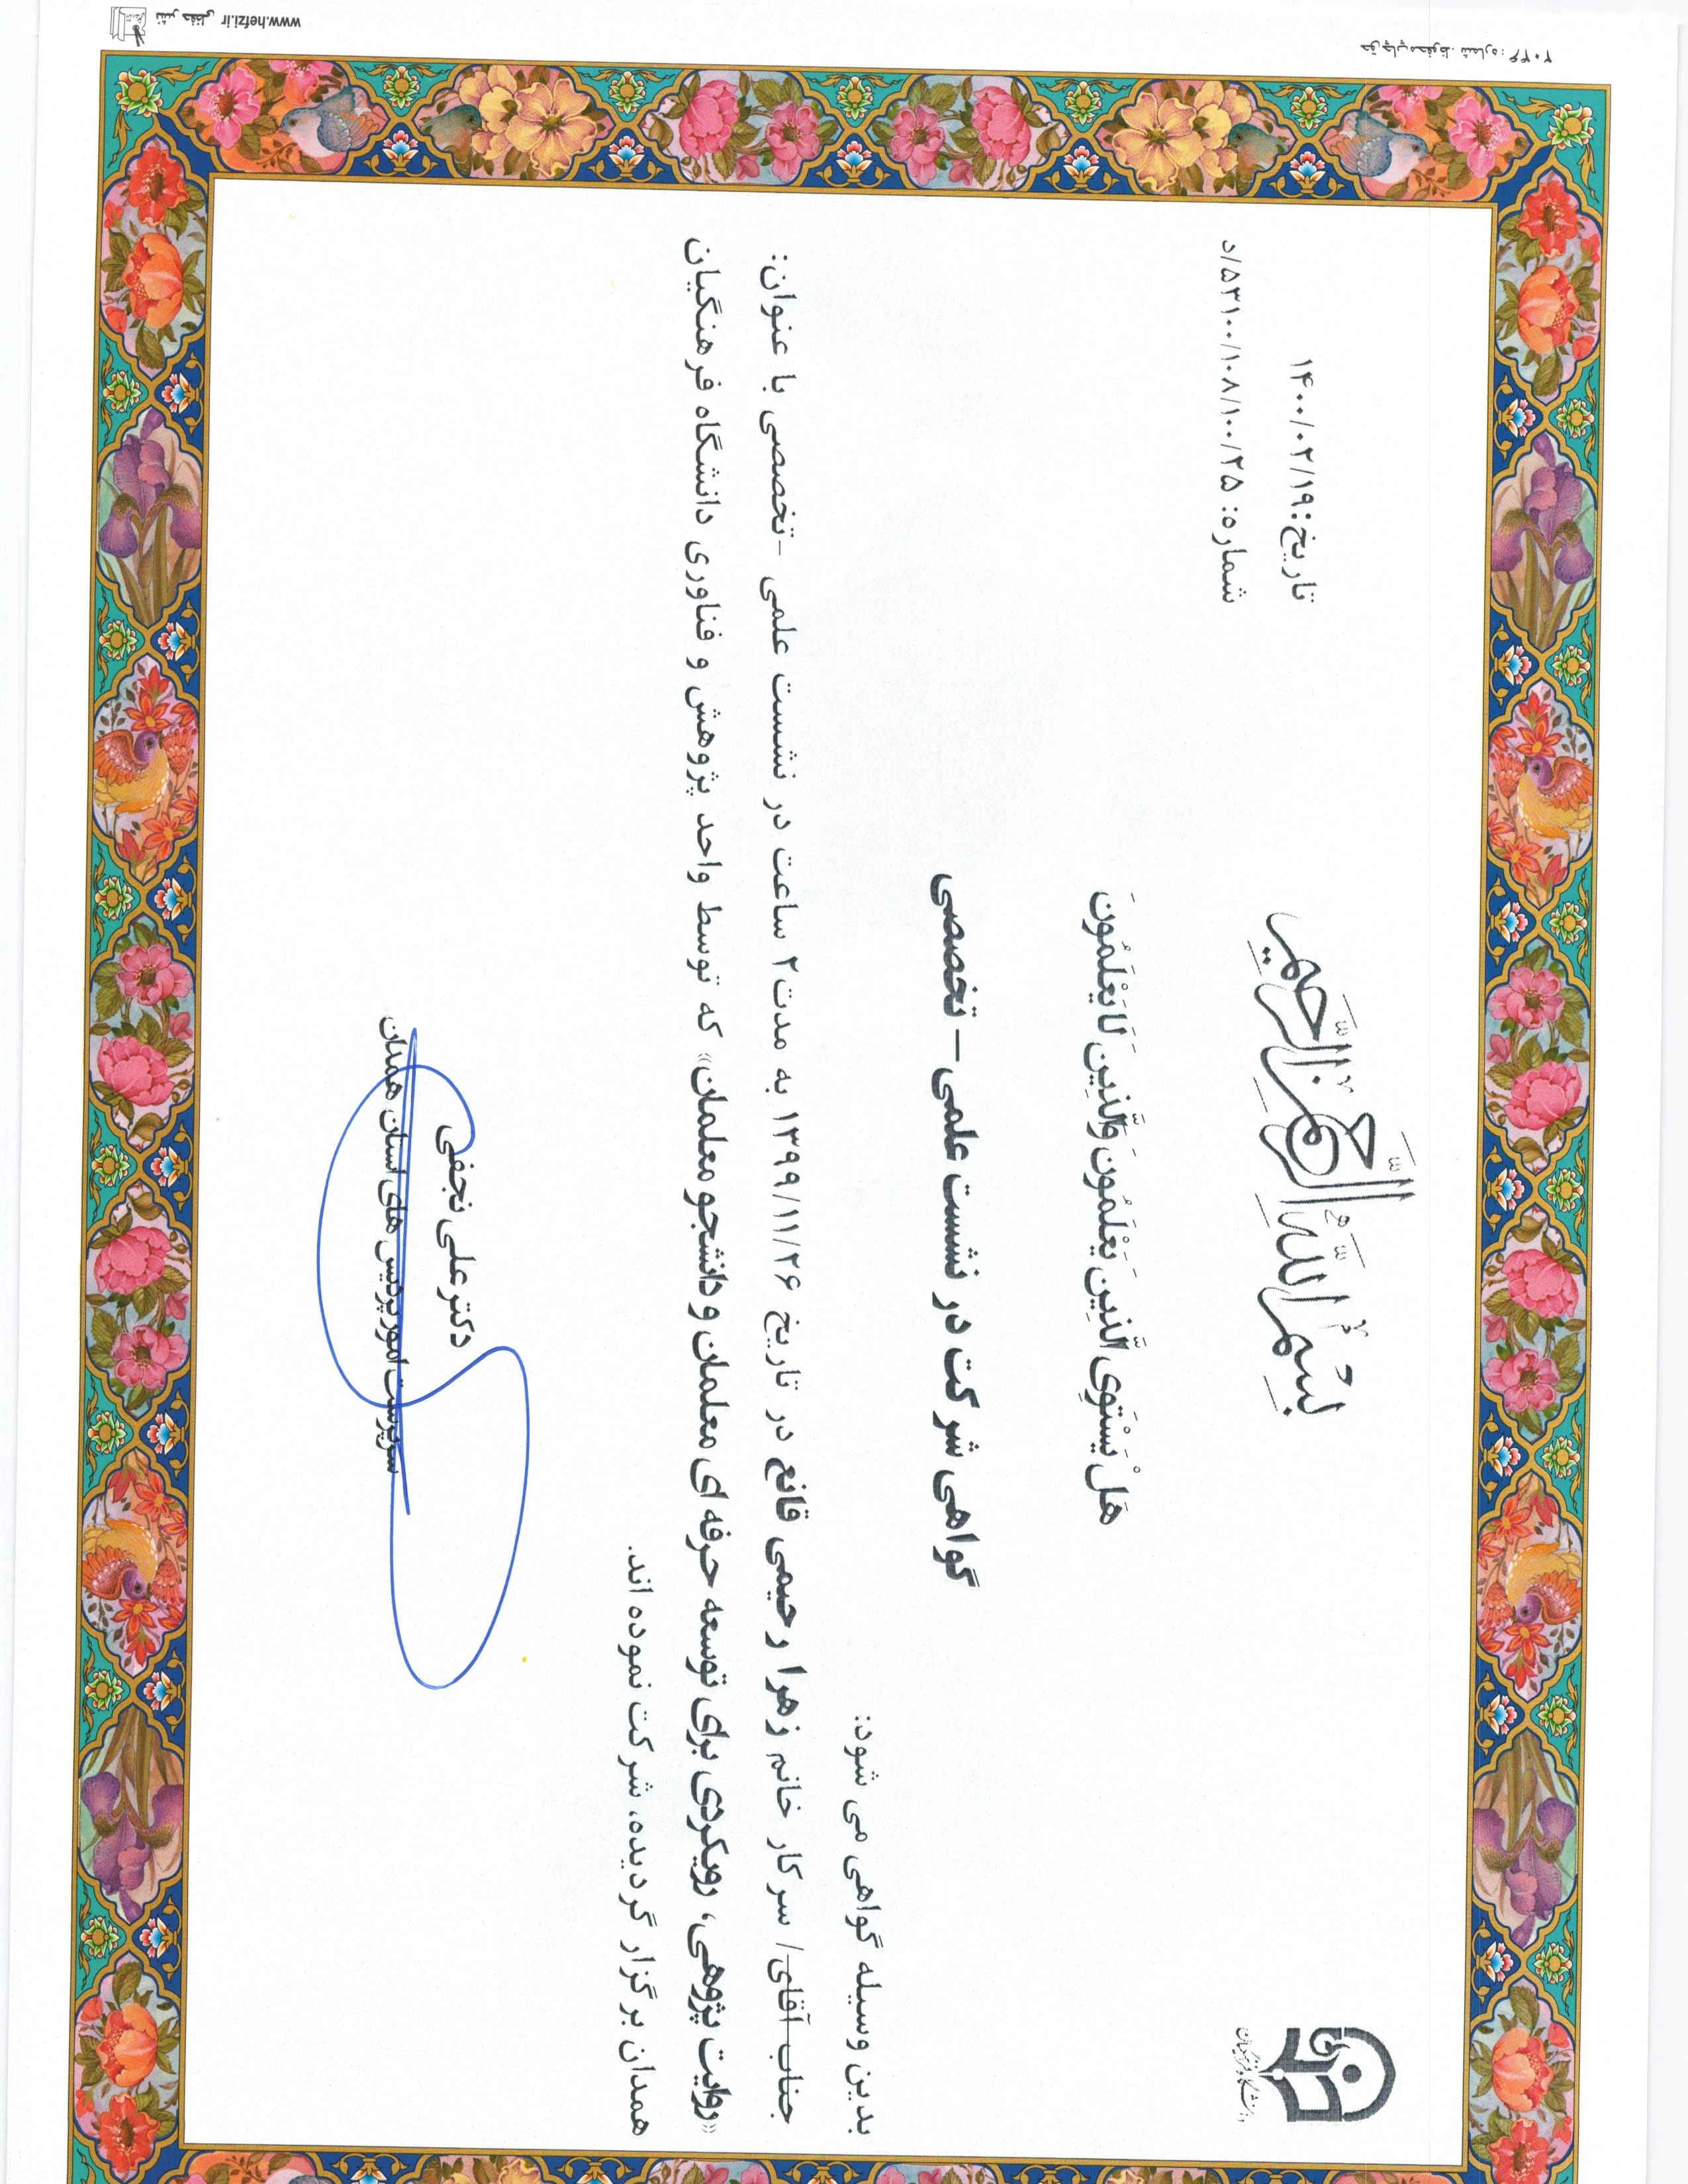 بِسْمِ اللَّهِ الرَّحْمٰنِ الرَّحِيمِ
تاریخ: ۱۴۰۰/۰۲/۱۹
شماره: ۵۳۱۰۰/۱۰۸/۱۰۰/۲۵/د
دانشگاه فرهنگیان
هَلْ یَسْتَوِی الَّذِینَ یَعْلَمُونَ وَالَّذِینَ لَا یَعْلَمُونَ
گواهی شرکت در نشست علمی – تخصصی
بدین وسیله گواهی می شود:
جناب آقای/ سرکار خانم زهرا رحیمی قانع در تاریخ ۱۳۹۹/۱۱/۲۶ به مدت ۲ ساعت در نشست علمی -تخصصی با عنوان:
«روایت پژوهی، رویکردی برای توسعه حرفه ای معلمان و دانشجو معلمان» که توسط واحد پژوهش و فناوری دانشگاه فرهنگیان
همدان برگزار گردیده، شرکت نموده اند.
دکتر علی نجفی
سرپرست امور پردیس های استان همدان
نشر حفظی www.hefzi.ir
حق چاپ محفوظ. شماره: ۲۰۲۶